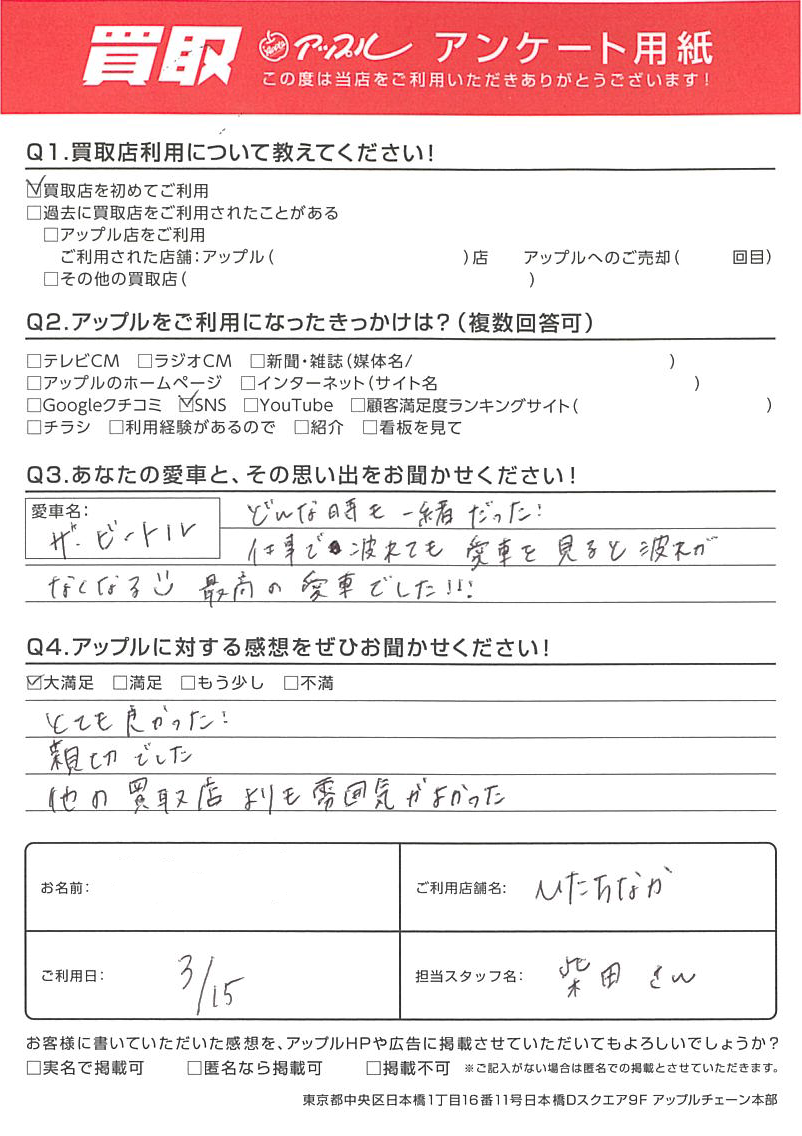 買取 Apple アップル アンケート用紙
この度は当店をご利用いただきありがとうございます!
Q1.買取店利用について教えてください!
☑買取店を初めてご利用
□過去に買取店をご利用されたことがある
□アップル店をご利用
ご利用された店舗:アップル( )店 アップルへのご売却( 回目)
□その他の買取店( )
Q2.アップルをご利用になったきっかけは?(複数回答可)
□テレビCM □ラジオCM □新聞・雑誌(媒体名/ )
□アップルのホームページ □インターネット(サイト名 )
□Googleクチコミ ☑SNS □YouTube □顧客満足度ランキングサイト( )
□チラシ □利用経験があるので □紹介 □看板を見て
Q3.あなたの愛車と、その思い出をお聞かせください!
愛車名:
ザ・ビートル
どんな時も一緒だった!
仕事で波れても愛車を見ると波れが
なくなる☺ 最高の愛車でした!!!
Q4.アップルに対する感想をぜひお聞かせください!
☑大満足 □満足 □もう少し □不満
とても良かった!
親切でした
他の買取店よりも雰囲気がよかった
お名前:
ご利用店舗名: ひたちなか
ご利用日: 3/15
担当スタッフ名: 柴田さん
お客様に書いていただいた感想を、アップルHPや広告に掲載させていただいてもよろしいでしょうか?
□実名で掲載可 □匿名なら掲載可 □掲載不可 ※ご記入がない場合は匿名での掲載とさせていただきます。
東京都中央区日本橋1丁目16番11号日本橋Dスクエア9F アップルチェーン本部